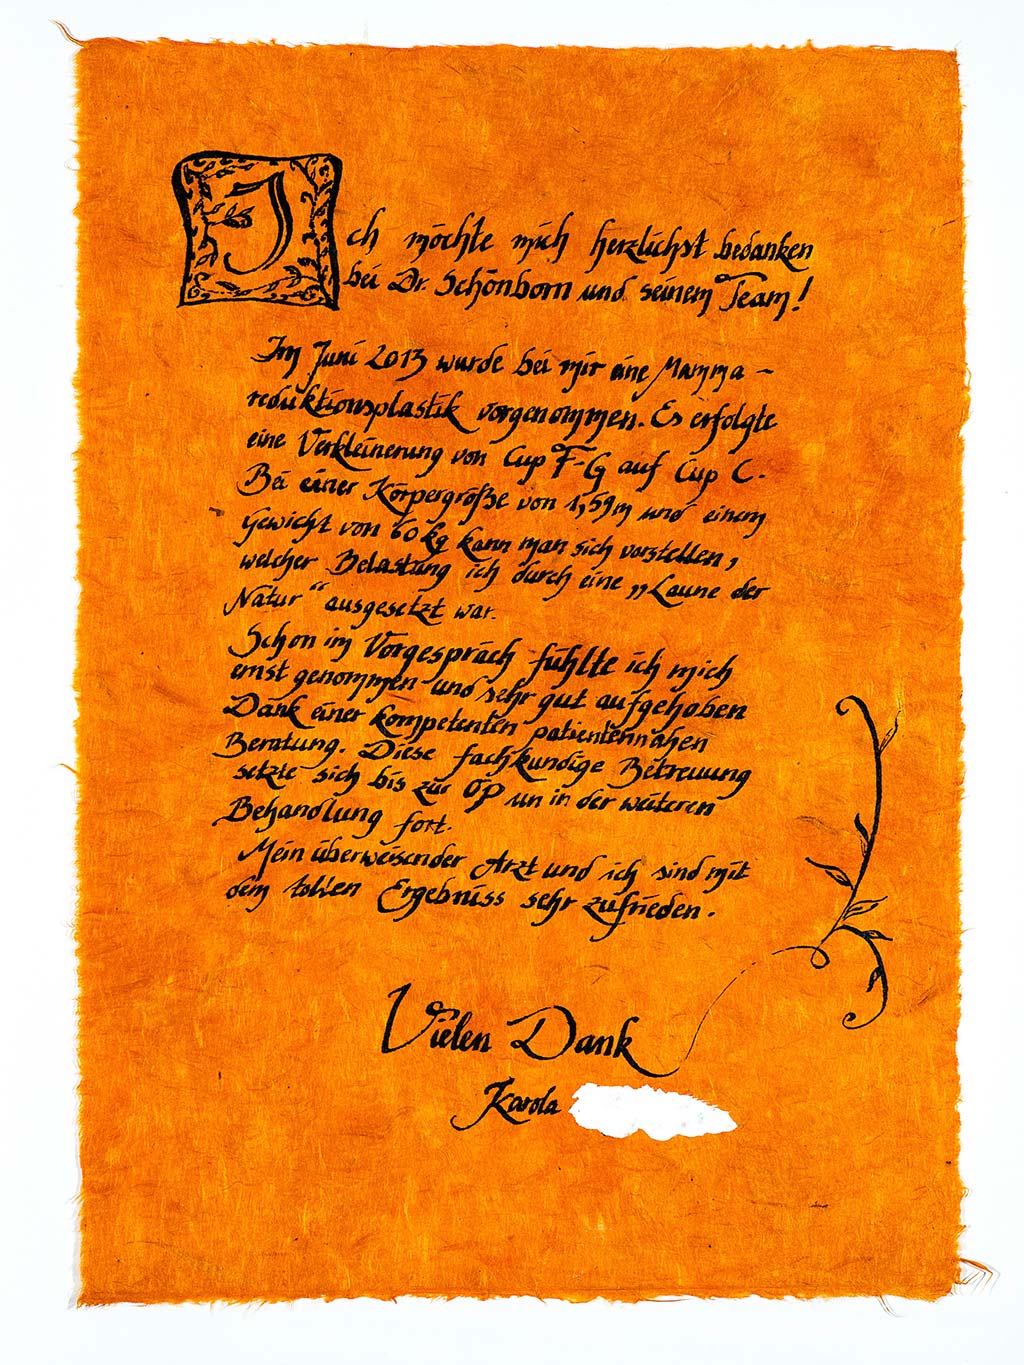 Ich möchte mich herzlichst bedanken
bei Dr. Schönborn und seinem Team!
Im Juni 2013 wurde bei mir eine Mamma-
reduktionsplastik vorgenommen. Es erfolgte
eine Verkleinerung von Cup F-G auf Cup C.
Bei einer Körpergröße von 1,59m und einem
Gewicht von 60 kg kann man sich vorstellen,
welcher Belastung ich durch eine „Laune der
Natur“ ausgesetzt war.
Schon im Vorgespräch fühlte ich mich
ernst genommen und sehr gut aufgehoben
Dank einer kompetenten patientennahen
Beratung. Diese fachkundige Betreuung
setzte sich bis zur OP un in der weiteren
Behandlung fort.
Mein überweisender Arzt und ich sind mit
dem tollen Ergebniss sehr zufrieden.
Vielen Dank
Karola